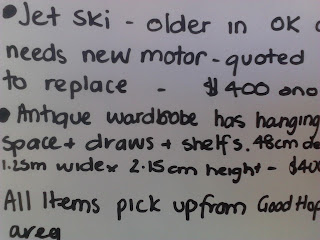 • Jet Ski - older in OK
needs new motor - quoted
to replace - $400 ono
• Antique wardbobe has hanging
space + draws + shelfs. 48cm de
1.25m wide x 2.15cm height - $400
All Items pick up from Good Hop
area